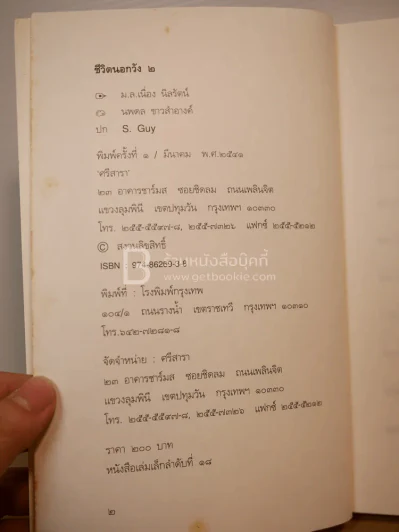 ชีวิตนอกวัง ๒
ม.ล.เนื่อง นิลรัตน์
นพดล ขาวสำอางค์
ปก S. Guy
พิมพ์ครั้งที่ ๑ / มีนาคม พ.ศ.๒๕๔๑
'ศรีสารา'
๒๓ อาคารชาร์มส ซอยชิดลม ถนนเพลินจิต
แขวงลุมพินี เขตปทุมวัน กรุงเทพฯ ๑๐๓๓๐
โทร. ๒๕๕-๕๕๙๗-๘, ๒๕๕-๗๓๒๖ แฟกซ์ ๒๕๕-๕๒๑๒
© สงวนลิขสิทธิ์
ISBN
ร้านหนังสือบุ๊คกี้
www.getbookie.com
พิมพ์ที่ : โรงพิมพ์กรุงเทพ
๑๐๔/๑ ถนนรางน้ำ เขตราชเทวี กรุงเทพฯ ๑๐๓๑๐
โทร.๖๔๒-๗๒๘๑-๘
จัดจำหน่าย : ศรีสารา
๒๓ อาคารชาร์มส ซอยชิดลม ถนนเพลินจิต
แขวงลุมพินี เขตปทุมวัน กรุงเทพฯ ๑๐๓๓๐
โทร. ๒๕๕-๕๕๙๗-๘, ๒๕๕-๗๓๒๖ แฟกซ์ ๒๕๕-๕๒๑๒
ราคา ๒๐๐ บาท
หนังสือเล่มเล็กลำดับที่ ๑๘
๒